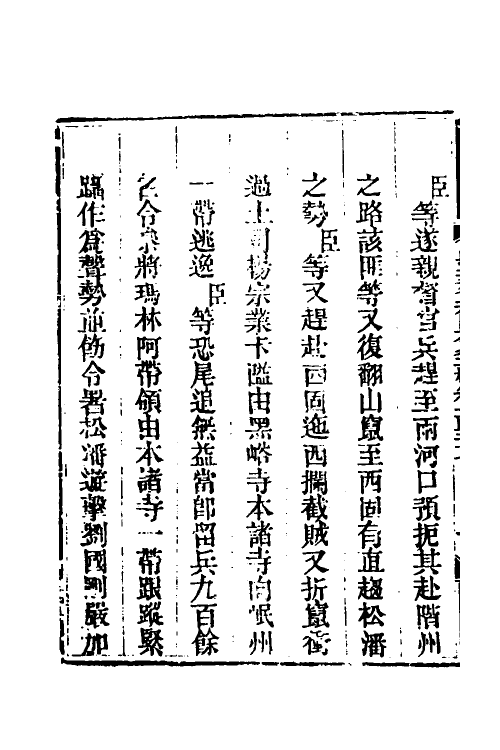 臣等遂親督官兵趕至兩河口預扼其赴階州
之路該匪等又復翻山竄至西固有直趨松潘
之勢臣等又趕赴西固迤西攔截賊又折竄衝
過土司楊宗業卡隘由黑峪寺本諸寺向岷州
一帶逃逸臣等恐尾追無益當卽留兵九百餘
名令叅將瑪林阿帶領由本諸寺一帶跟蹤緊
躡作爲聲勢並飭令署松潘遊擊劉國剛嚴加